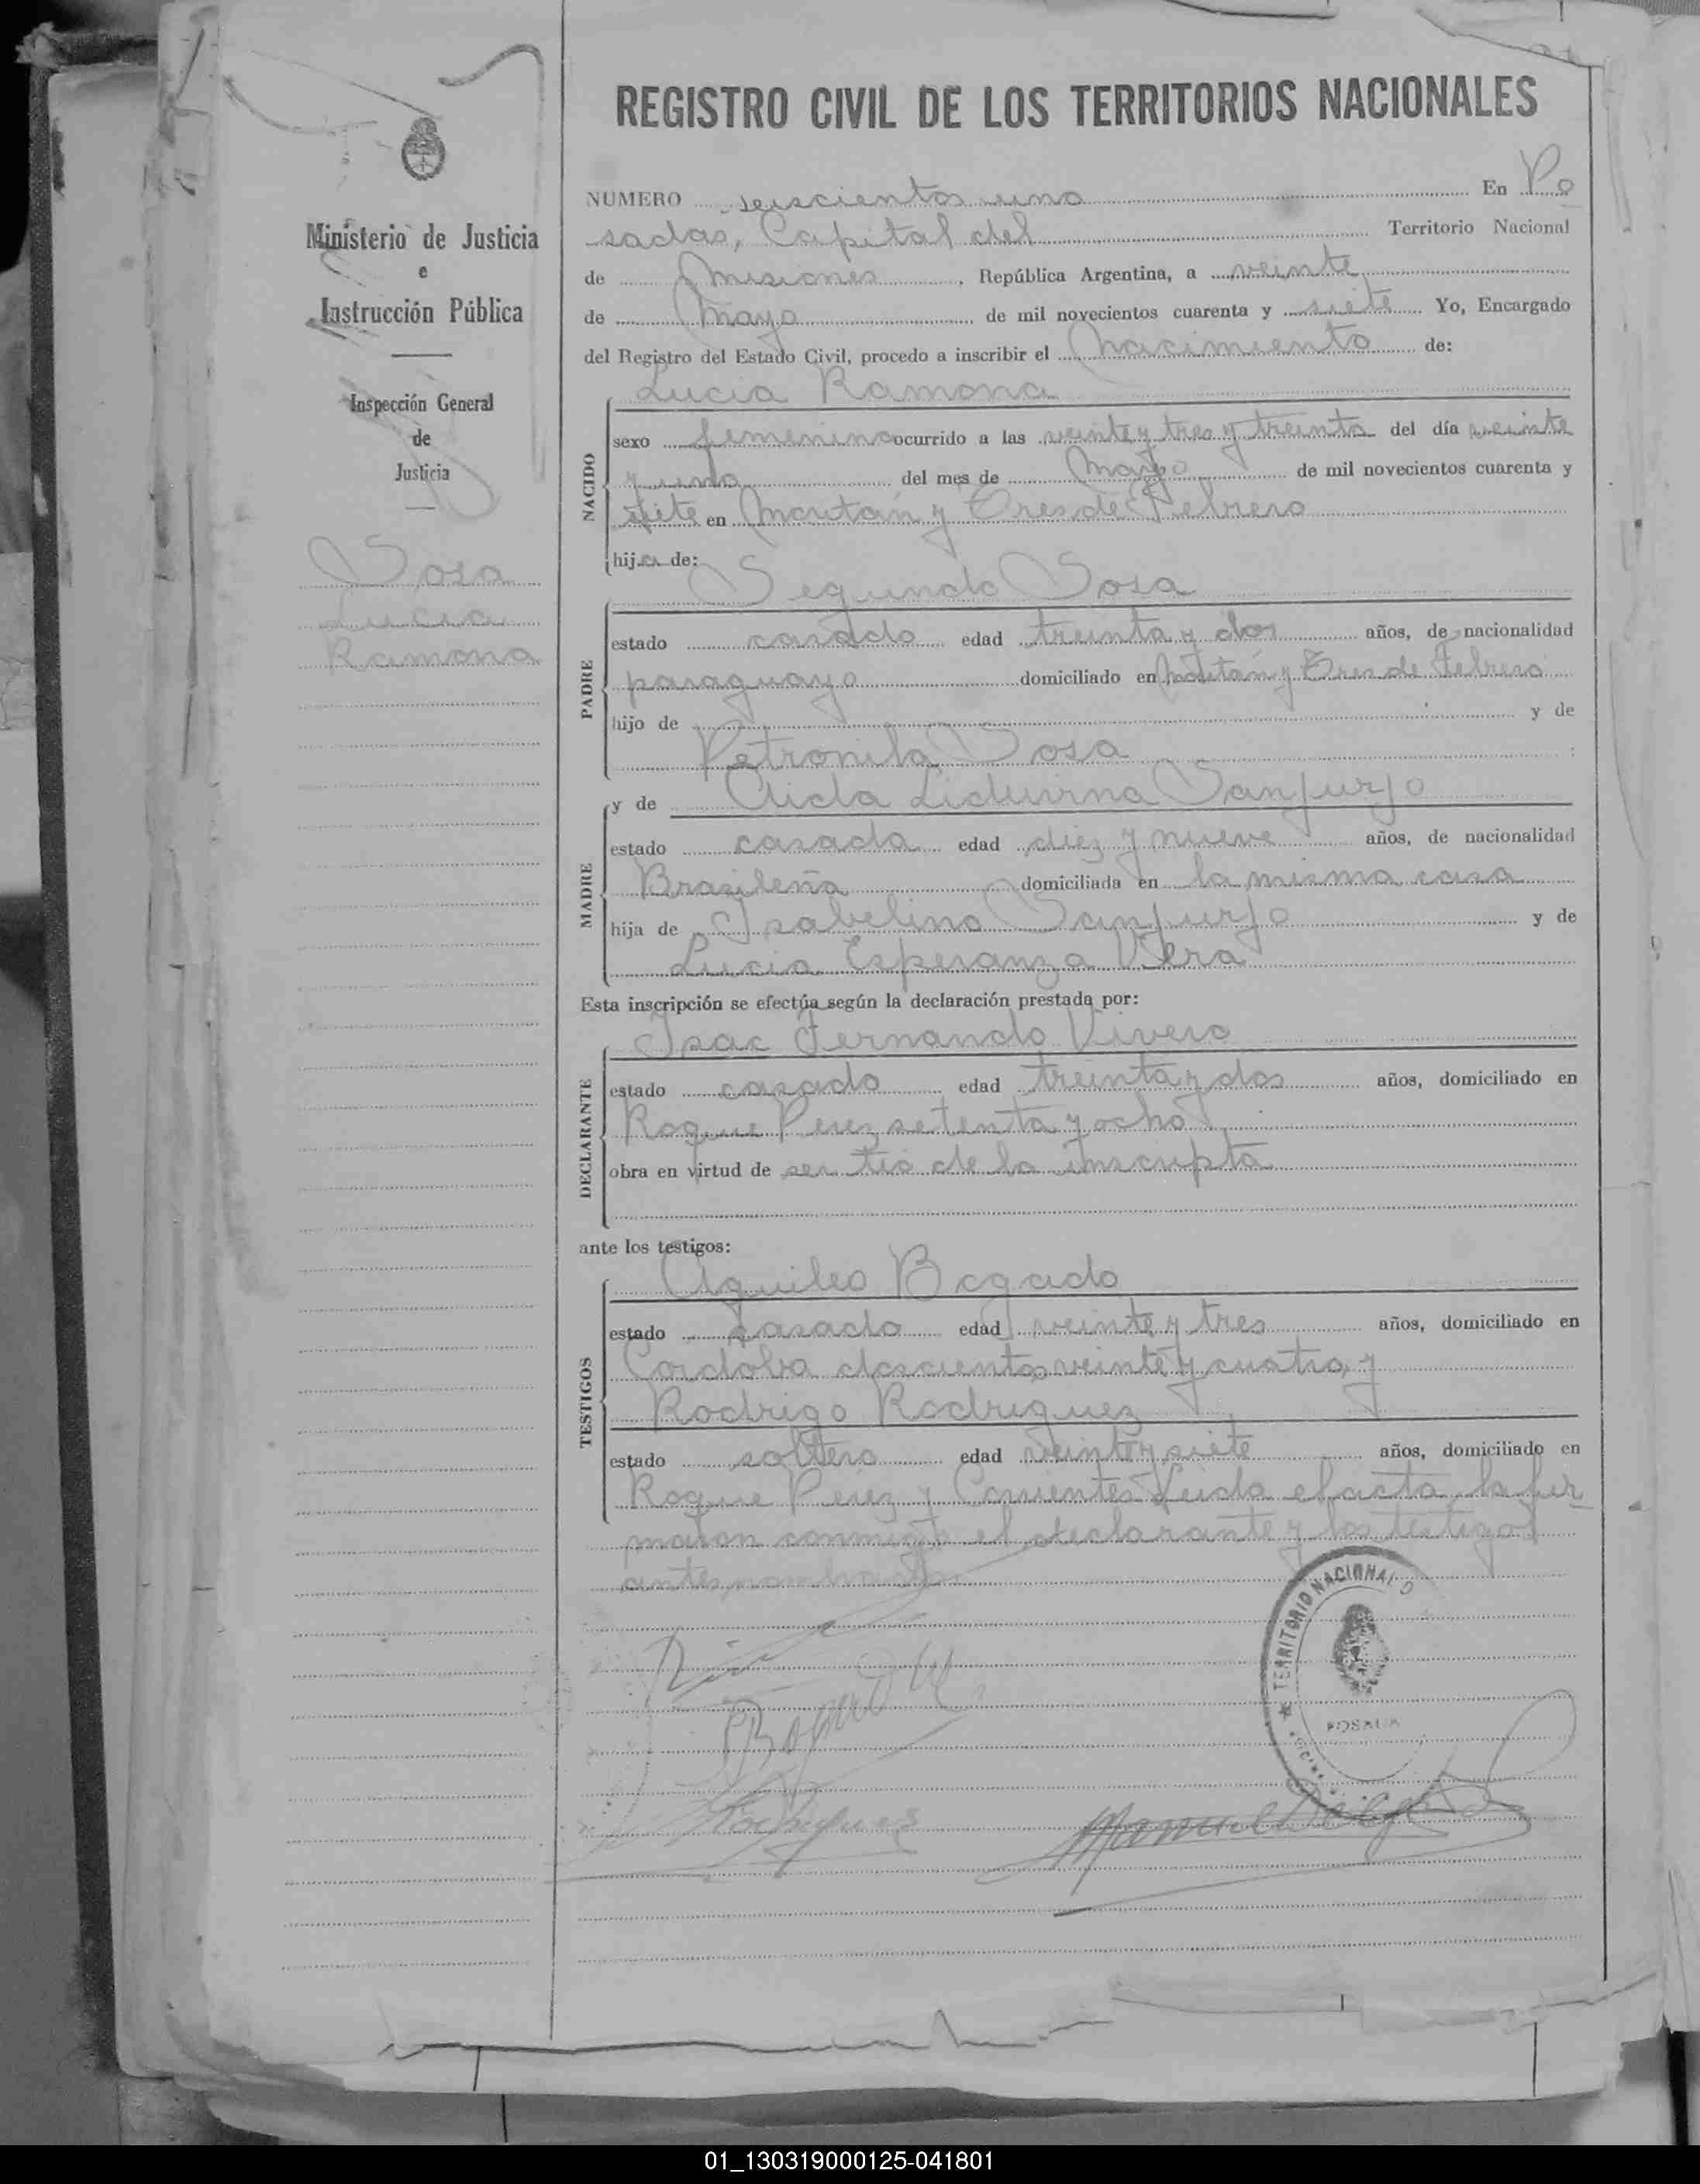 REGISTRO CIVIL DE LOS TERRITORIOS NACIONALES
Ministerio de Justicia
e
Instrucción Pública
Inspección General
de
Justicia
Sosa
Lucia
Ramona
NUMERO seiscientos uno En Po
sadas, Capital del Territorio Nacional
de Misiones, República Argentina, a veinte
de Mayo de mil novecientos cuarenta y siete Yo, Encargado
del Registro del Estado Civil, procedo a inscribir el nacimiento de:
Lucia Ramona
NACIDO
sexo femenino ocurrido a las veinte y tres y treinta del día veinte
y uno del mes de Mayo de mil novecientos cuarenta y
siete en y Tres de Febrero
hija de:
Segundo Sosa
PADRE
estado casado edad treinta y dos años, de nacionalidad
paraguayo domiciliado en y Tres de Febrero
hijo de y de
Petronila Sosa
MADRE
y de Aida Liduvina Sanjurjo
estado casada edad diez y nueve años, de nacionalidad
Brasileña domiciliada en la misma casa
hija de Isabelino Sanjurjo y de
Lucia Esperanza Vera
Esta inscripción se efectúa según la declaración prestada por:
Isac Fernando Vivero
DECLARANTE
estado casado edad treinta y dos años, domiciliado en
Roque Perez setenta y ocho
obra en virtud de ser tio de la inscripta
ante los testigos:
Aquileo Bogado
TESTIGOS
estado casado edad veinte y tres años, domiciliado en
Cordoba doscientos veinte y cuatro y
Rodrigo Rodriguez
estado soltero edad veinte y siete años, domiciliado en
Roque Perez y Corrientes Leida el acta, la fir
maron conmigo el declarante y los testigos
antes nombrados
TERRITORIO NACIONAL D
POSADA
Bogado
Rodriguez
Manuel
01_130319000125-041801